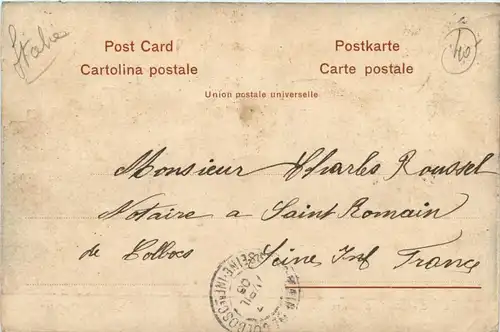 Italie
40
Post Card Postkarte
Cartolina postale Carte postale
Union postale universelle
Monsieur Charles Roussel
Notaire a Saint Romain
de Colbocs Seine Inf France
SEINE-INFRE